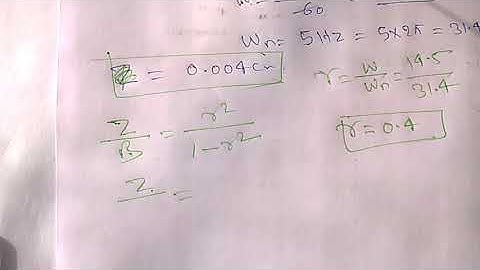 -60
Wn = 5Hz = 5×2π = 31.4
= 0.004cm
r = W/Wn = 14.5/31.4
Z/B = r²/1-r²
r = 0.4
Z =